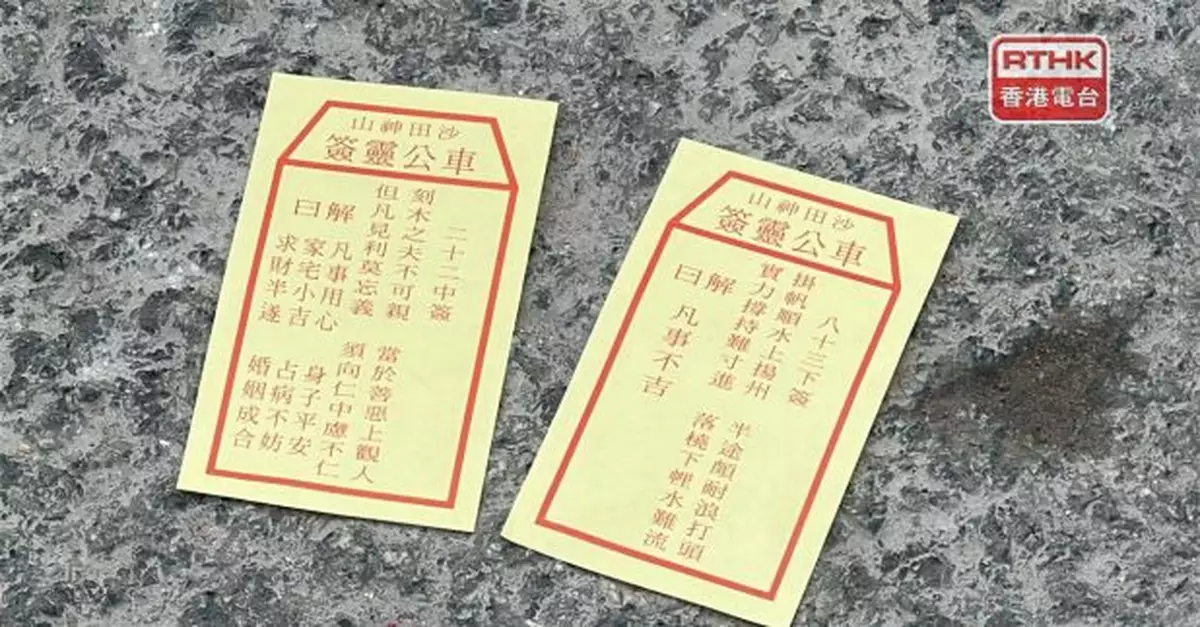 RTHK
香港電台
沙田神山
車公靈簽
二十二中簽
刻木之夫不可親
當於善惡上觀人
但凡見利莫忘義
須向仁中慮不仁
解曰
凡事用心
身子平安
家宅小吉
占病不妨
求財半遂
婚姻成合
沙田神山
車公靈簽
八十三下簽
掛帆順水上揚州
半途顛耐浪打頭
實力撐持難寸進
落橈下𢃇水難流
解曰
凡事不吉